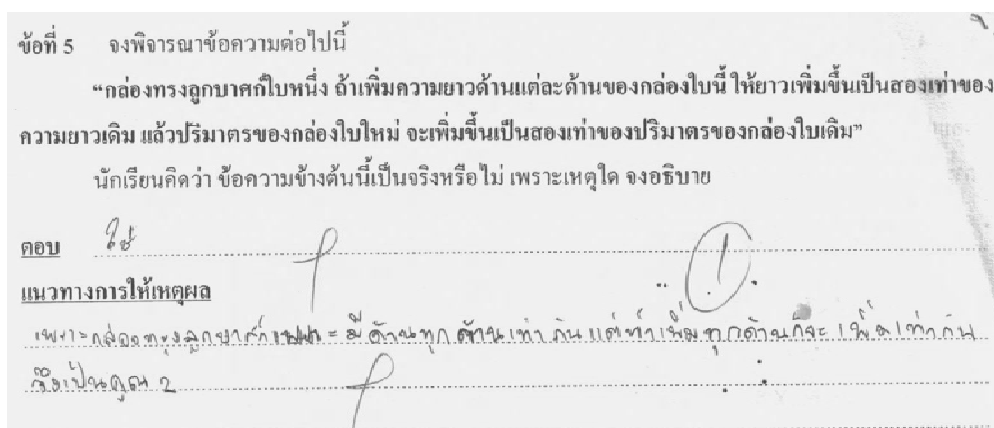 ข้อที่ 5 จงพิจารณาข้อความต่อไปนี้
“กล่องทรงลูกบาศก์ใบหนึ่ง ถ้าเพิ่มความยาวด้านแต่ละด้านของกล่องใบนี้ ให้ยาวเพิ่มขึ้นเป็นสองเท่าของ
ความยาวเดิม แล้วปริมาตรของกล่องใบใหม่ จะเพิ่มขึ้นเป็นสองเท่าของปริมาตรของกล่องใบเดิม”
นักเรียนคิดว่า ข้อความข้างต้นนี้เป็นจริงหรือไม่ เพราะเหตุใด จงอธิบาย
ตอบ ใช่
แนวทางการให้เหตุผล
เพราะกล่องทรงลูกบาศก์ มีด้านทุกด้านเท่ากันแต่ถ้าเพิ่มทุกด้านก็จะเพิ่มเท่ากัน
จึงเป็นคูณ 2